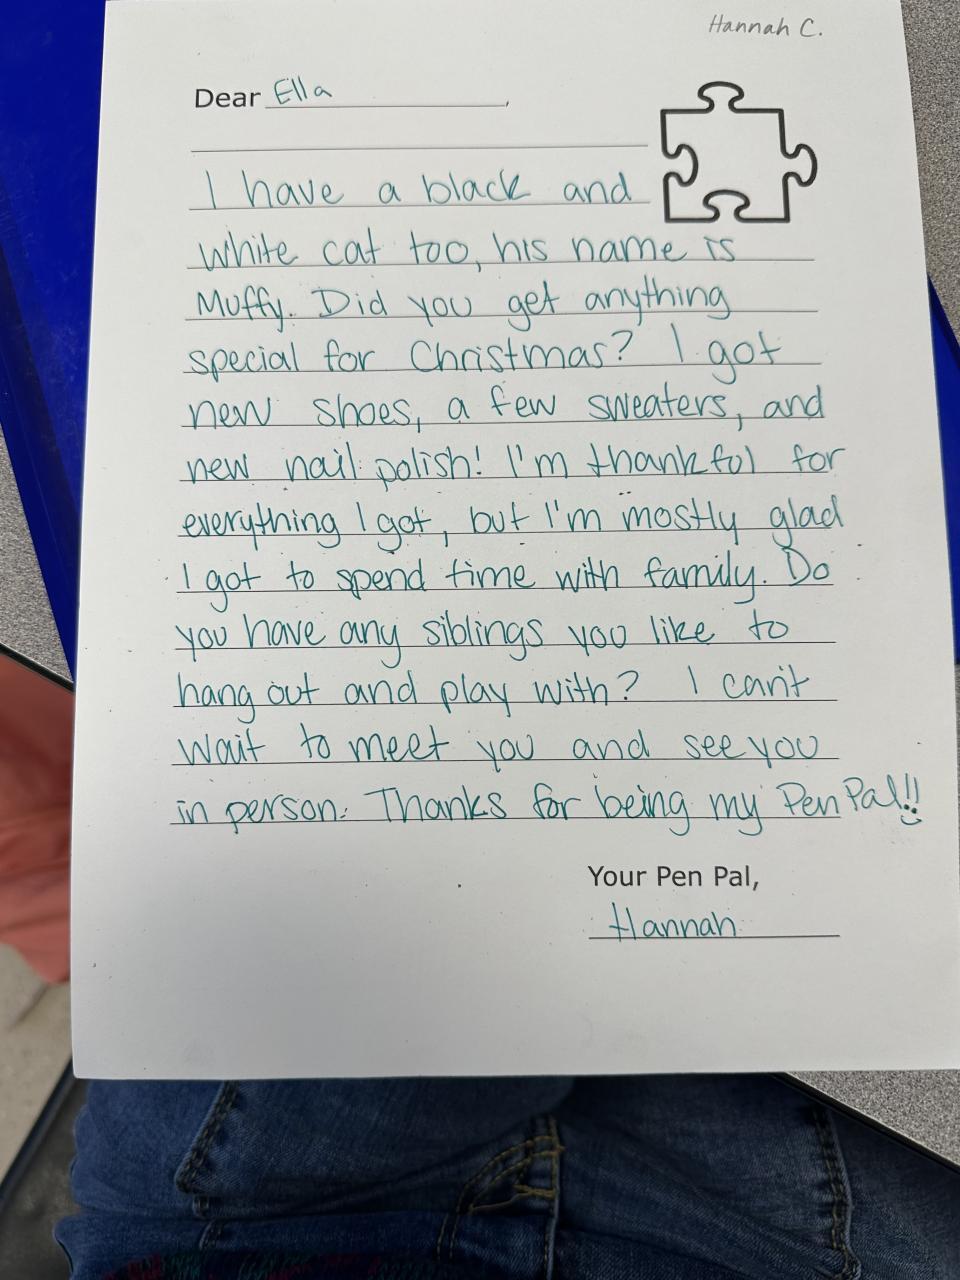 Hannah C.
Dear Ella,
I have a black and
white cat too, his name is
Muffy. Did you get anything
special for Christmas? I got
new shoes, a few sweaters, and
new nail polish! I'm thankful for
everything I got, but I'm mostly glad
I got to spend time with family. Do
you have any siblings you like to
hang out and play with? I can't
wait to meet you and see you
in person. Thanks for being my Pen Pal!!
Your Pen Pal,
Hannah